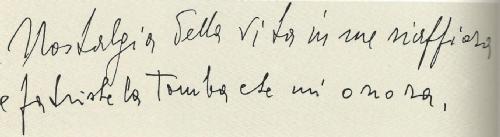 Nostalgia della vita in me riaffiora
e fa triste la Tomba che mi onora.